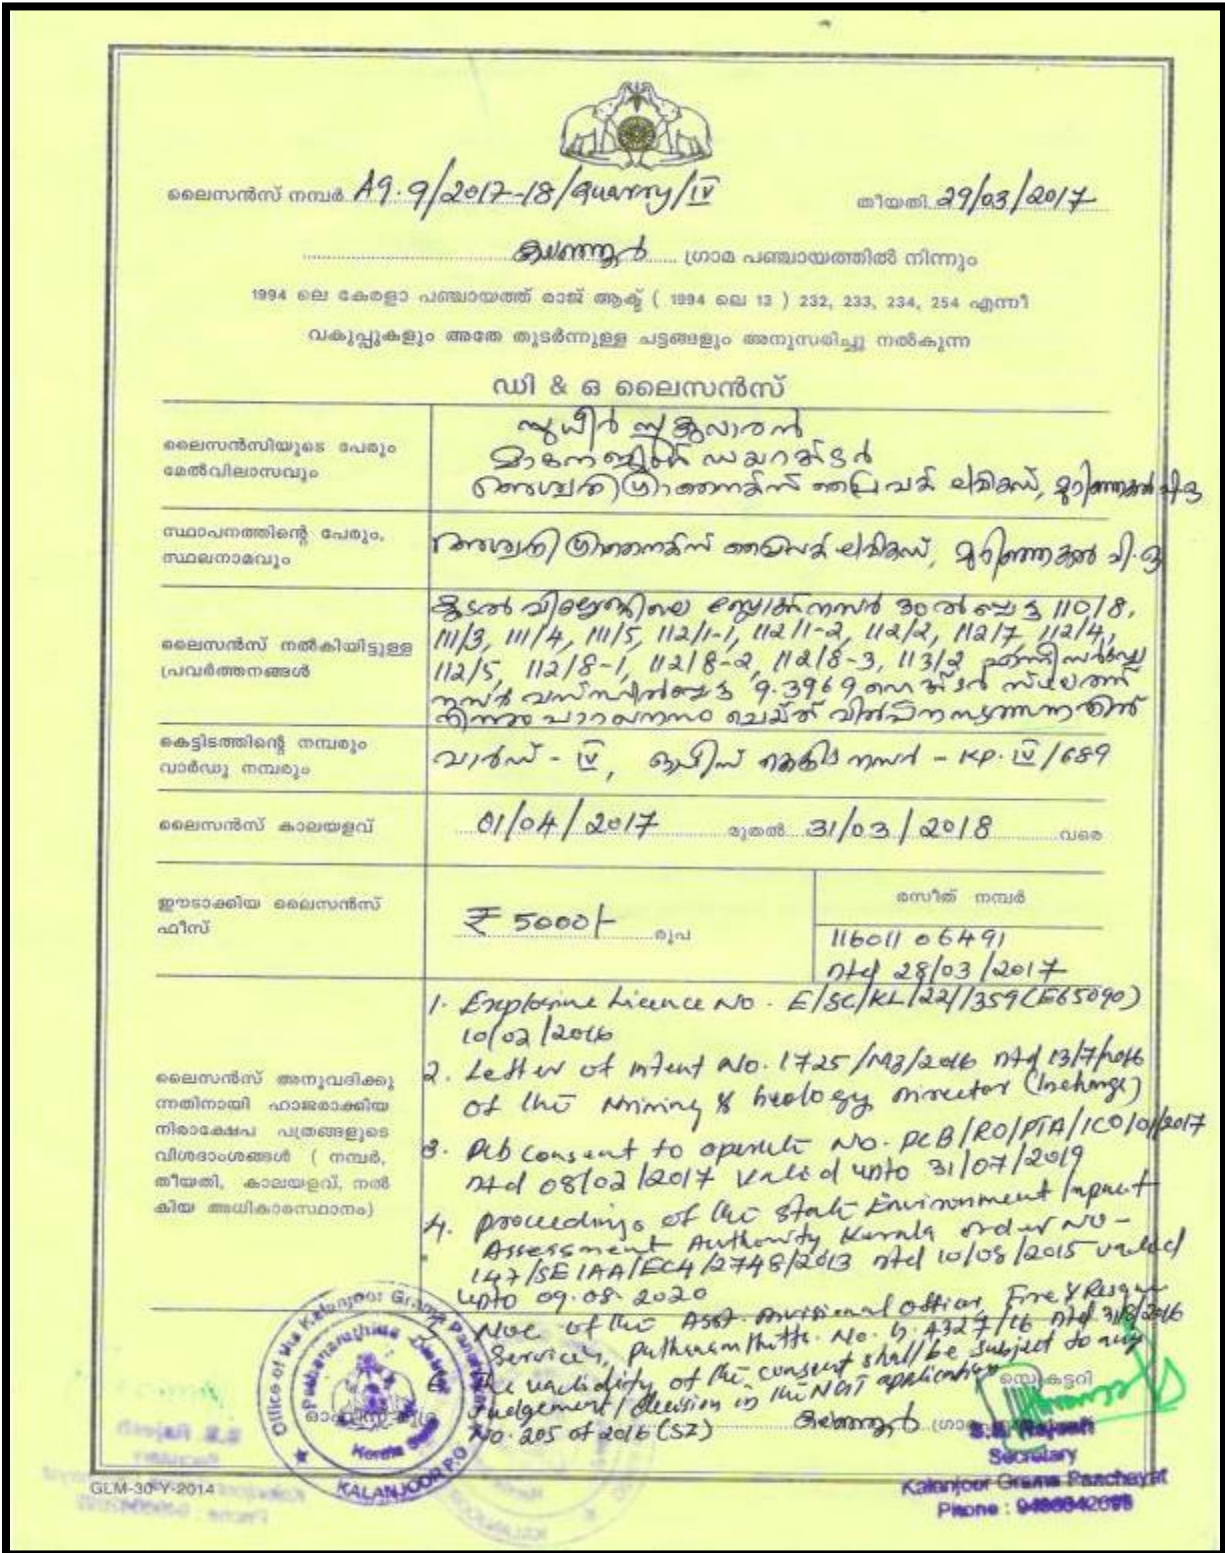 ലൈസൻസ് നമ്പർ A9-9/2017-18/Quarry/IV തീയതി 29/03/2017
കലഞ്ഞൂർ ഗ്രാമ പഞ്ചായത്തിൽ നിന്നും
1994 ലെ കേരളാ പഞ്ചായത്ത് രാജ് ആക്ട് ( 1994 ലെ 13 ) 232, 233, 234, 254 എന്നീ
വകുപ്പുകളും അതേ തുടർന്നുള്ള ചട്ടങ്ങളും അനുസരിച്ചു നൽകുന്ന
ഡി & ഒ ലൈസൻസ്
ലൈസൻസിയുടെ പേരും
മേൽവിലാസവും
സുധീർ സുകുമാരൻ
മാനേജിംഗ് ഡയറക്ടർ
ഗ്രാനൈറ്റ്സ് പ്രൈവറ്റ് ലിമിറ്റഡ്, മുറിഞ്ഞകൽ പി.ഒ
സ്ഥാപനത്തിന്റെ പേരും,
സ്ഥലനാമവും
ഗ്രാനൈറ്റ്സ് പ്രൈവറ്റ് ലിമിറ്റഡ്, മുറിഞ്ഞകൽ പി.ഒ
ലൈസൻസ് നൽകിയിട്ടുള്ള
പ്രവർത്തനങ്ങൾ
കൂടൽ വില്ലേജിലെ ബ്ലോക്ക് നമ്പർ 30 ൽ പ്പെട്ട 110/8,
111/3, 111/4, 111/5, 112/1-1, 112/1-2, 112/2, 112/7, 112/4,
112/5, 112/8-1, 112/8-2, 112/8-3, 113/2 റീസർവ്വേ
നമ്പർ 9.3969 ഹെക്ടർ സ്ഥലത്ത്
നിന്നും പാറഖനനം ചെയ്ത് വിൽപ്പന നടത്തുന്നതിന്
കെട്ടിടത്തിന്റെ നമ്പരും
വാർഡു നമ്പരും
വാർഡ് - IV, ഓഫീസ് കെട്ടിട നമ്പർ - KP. IV/689
ലൈസൻസ് കാലയളവ്
01/04/2017 മുതൽ 31/03/2018 വരെ
ഈടാക്കിയ ലൈസൻസ്
ഫീസ്
₹ 5000/- രൂപ
രസീത് നമ്പർ
11601106491
dtd 28/03/2017
ലൈസൻസ് അനുവദിക്കു
ന്നതിനായി ഹാജരാക്കിയ
നിരാക്ഷേപ പത്രങ്ങളുടെ
വിശദാംശങ്ങൾ ( നമ്പർ,
തീയതി, കാലയളവ്, നൽ
കിയ അധികാരസ്ഥാനം)
1. Explosive Licence No. E/SC/KL/22/1359 (E65090)
10/02/2016
2. Letter of intent No. 1725/M3/2016 dtd 13/7/2016
of the Mining & Geology Director (Incharge)
3. Pcb consent to operate No. PCB/RO/PTA/ICO/01/2017
dtd 08/02/2017 Valid upto 31/07/2019
4. Proceedings of the State Environment Impact
Assessment Authority Kerala order No-
147/SEIAA/EC4/2748/2013 dtd 10/08/2015 valid
upto 09.08.2020
NOC of the Asst. Divisional officer, Fire & Rescue
Services, Pathanamthitta. No. G. 4327/16 dtd 31/8/2016
The validity of the consent shall be subject to any
Judgement/decision in the NGT application
No. 205 of 2016 (SZ)
Office of the Kalanjoor Grama Panchayat
Pathanamthitta District
Kerala State
KALANJOOR P.O
സെക്രട്ടറി
കലഞ്ഞൂർ
Secretary
Kalanjoor Grama Panchayat
GLM-30-Y-2014